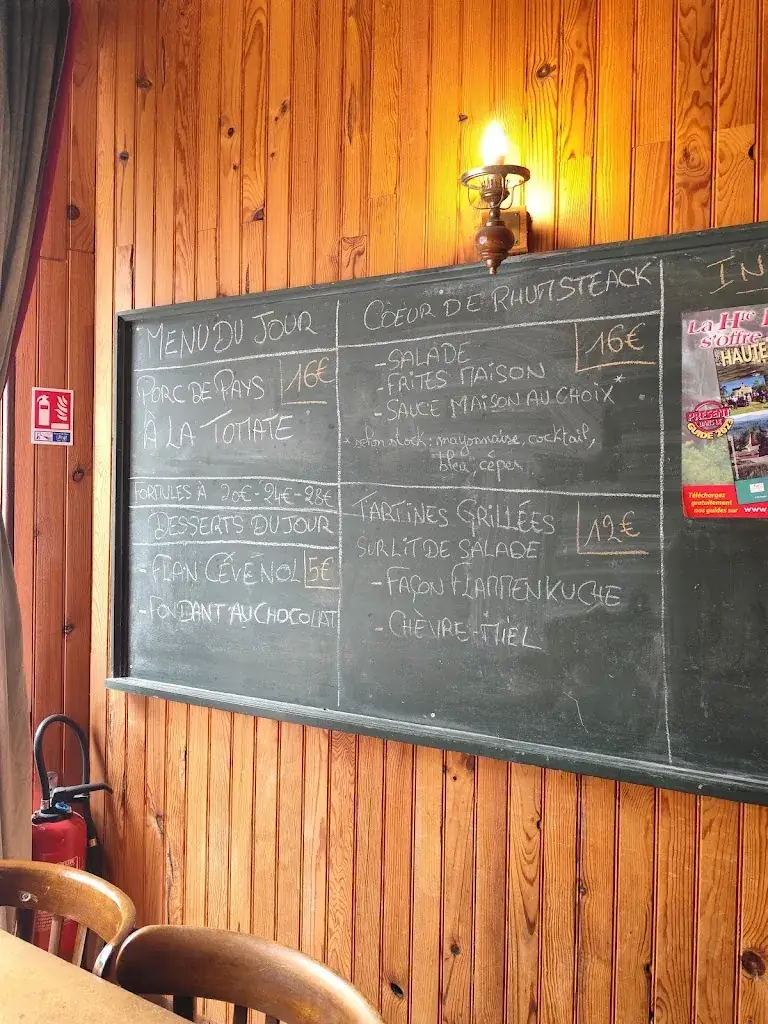 MENU DU JOUR
PORC DE PAYS 16€
À LA TOMATE
FORMULES À 20€-24€-28€
DESSERTS DU JOUR
- FLAN CÉVENOL 5€
- FONDANT AU CHOCOLAT
COEUR DE RHUMSTEACK
- SALADE 16€
- FRITES MAISON
- SAUCE MAISON AU CHOIX*
* selon stock: mayonnaise, cocktail,
bleu, cépes
TARTINES GRILLÉES 12€
SUR LIT DE SALADE
- FAÇON FLAMMENKUCHE
- CHÈVRE-MIEL
IN
La Hte
s'offre
HAUTE
PRÉSENT
DANS LE
GUIDE 2023
Téléchargez
gratuitement
nos guides sur www.